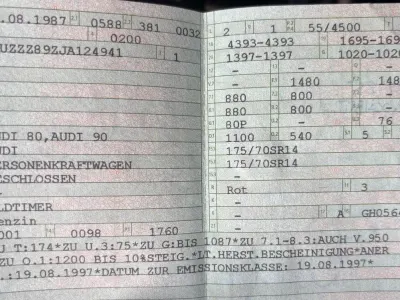 .08.1987 0588 381 0032
0200
UZZZ89ZJA124941 1
UDI 80,AUDI 90
UDI
ERSONENKRAFTWAGEN
SCHLOSSEN
LDTIMER
enzin
001 0098 1760
2 1 55/4500
4393-4393 1695-169
1397-1397 1020-102
- -
- 1480 148
880 800 -
880 800 -
80P - 76
1100 540 5
175/70SR14
175/70SR14
-
Rot 3
-
- A GH0564
U T:174*ZU U.3:75*ZU G:BIS 1087*ZU 7.1-8.3:AUCH V.950
ZU O.1:1200 BIS 10%STEIG.*LT.HERST.BESCHEINIGUNG*ANER
.:19.08.1997*DATUM ZUR EMISSIONSKLASSE: 19.08.1997*